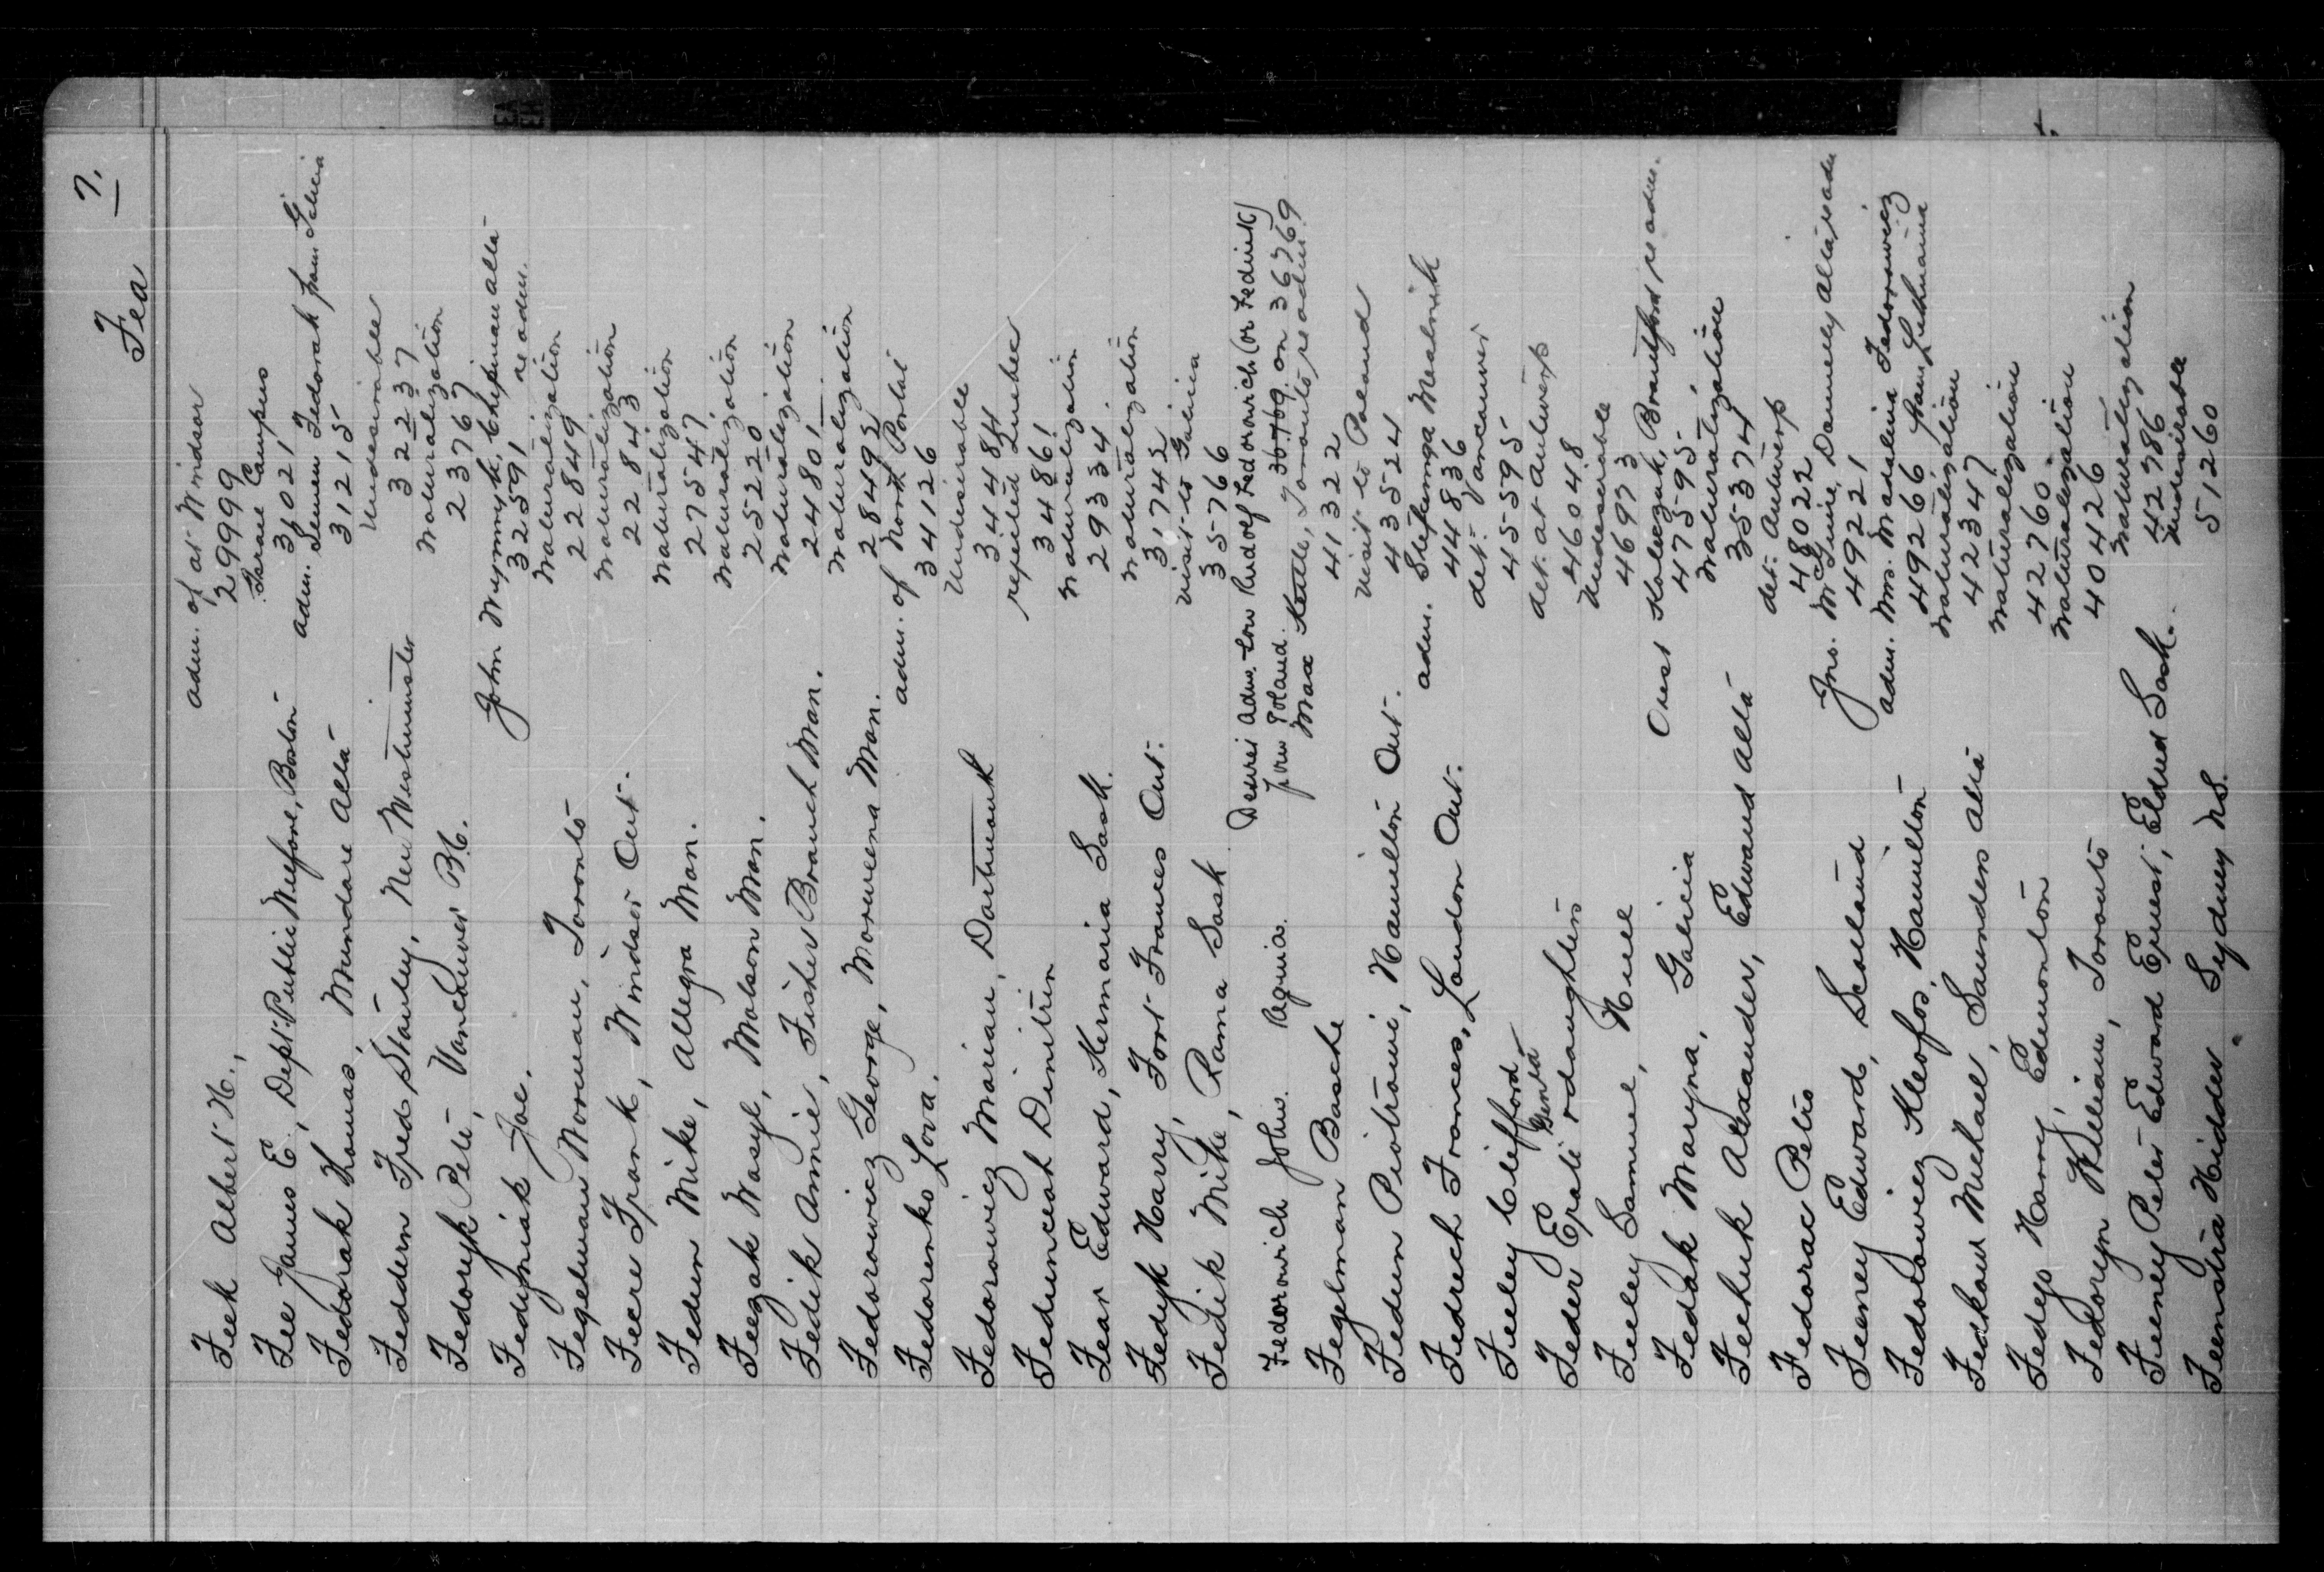 7.
Fea
Feek Albert H., adm. of at Windsor
29999
Fee James E., Dept. Public Welfare, Boston Israel Campers
31021
Fedorak Thomas, Mundare Alta adm. Semen Fedorak from Galicia
31215
Feddern Fred Stanley, New Westminster Undesirable
32237
Fedoryk Pete, Vancouver B.C. Naturalization
23767
Fedyniak Joe. John Weynnyk, Chipman Alta
32591 re adm.
Fegelman Norman, Toronto Naturalization
22849
Feere Frank, Windsor Ont. Naturalization
22843
Fedun Mike, Allegra Man. Naturalization
27547
Feegak Wasyl, Molson Man. Naturalization
25220
Fedik Annie, Fisher Branch Man. Naturalization
24801
Fedorowicz George, Morweena Man. Naturalization
28492
Fedorenko Lova. adm. of North Portal
34126
Fedorowicz Marian, Dartmouth Undesirable
34484
Fedunceah Dimitrin rejected Quebec
34861
Fear Edward, Kermaria Sask. Naturalization
29334
Fedyk Harry, Fort Frances Ont. Naturalization
31742
Fedik Mike, Rama Sask visit to Galicia
35766
Fedorowich John. Regina. Desires adm. son Rudolf Fedorowich (or Fedinik)
from Poland. on 36769
Fegelman Basche Max Kettle, Toronto, re adm.
41322
Fedun Piotrowi, Hamilton Ont. Visit to Poland
43524
Fedrech Frances, London Ont. adm. Stefumya Mealnik
44836
Feeley Clifford det. Vancouver
45595
Feder Epali & daughters det. at Antwerp
Genia
46048
Feeley Samuel, Hull Undesirable
46973
Fedak Maryna, Galicia Orest Kaleczuk, Brantford re adm.
47595
Fechuk Alexander, Edwand Alta Naturalization
35374
Fedorac Petro det. Antwerp
48022
Feeney Edward, Scotland Jno. McGuire, Donnelly Alta, re adm
49221
Fedorowicz Kleofos, Hamilton adm. Mrs. Madalina Fedorowicz
49266 from Lithuania
Fedkow Michael, Saunders Alta Naturalization
42347
Fedejo Harry, Edmonton Naturalization
42760
Fedoryn William, Toronto Naturalization
40426
Feeney Peter Edward Ernest, Eldred Sask. Naturalization
42786
Feenstra Hidder Sydney N.S. Undesirable
51260